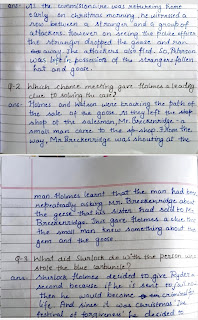 ans: As the commissionaire was returning home
early on christmas morning, he witnessed a
row between a stranger and a group of
attackers. However on seeing the police officer
the stranger dropped the goose and ran
away. The attackers also fled. Mr. Peterson
was left in possession of the strangers fallen
hat and goose.
Q-2 Which chance meeting gave Holmes a leading
clue to solving the case?
ans: Holmes and Watson were tracking the path of
the sale of the goose. As they left the
shop of the salesman, Mr. Breckenridge - a
small man came to the shop. From the
way, Mr. Breckenridge was shouting at the
man Holmes learnt that the man had been
repeatedly asking Mr. Breckenridge about
the geese that his sister had sold to Mr.
Breckenridge. This gave Holmes a clue that
the small man knew something about the
gem and the goose.
Q-3 What did Sherlock do with the person who
stole the blue carbuncle?
ans: Sherlock Holmes decided to give Ryder a
second because if he is sent to jail
then he would become criminal
life. And since it was christmas 'the
festival of forgiveness' he decided to